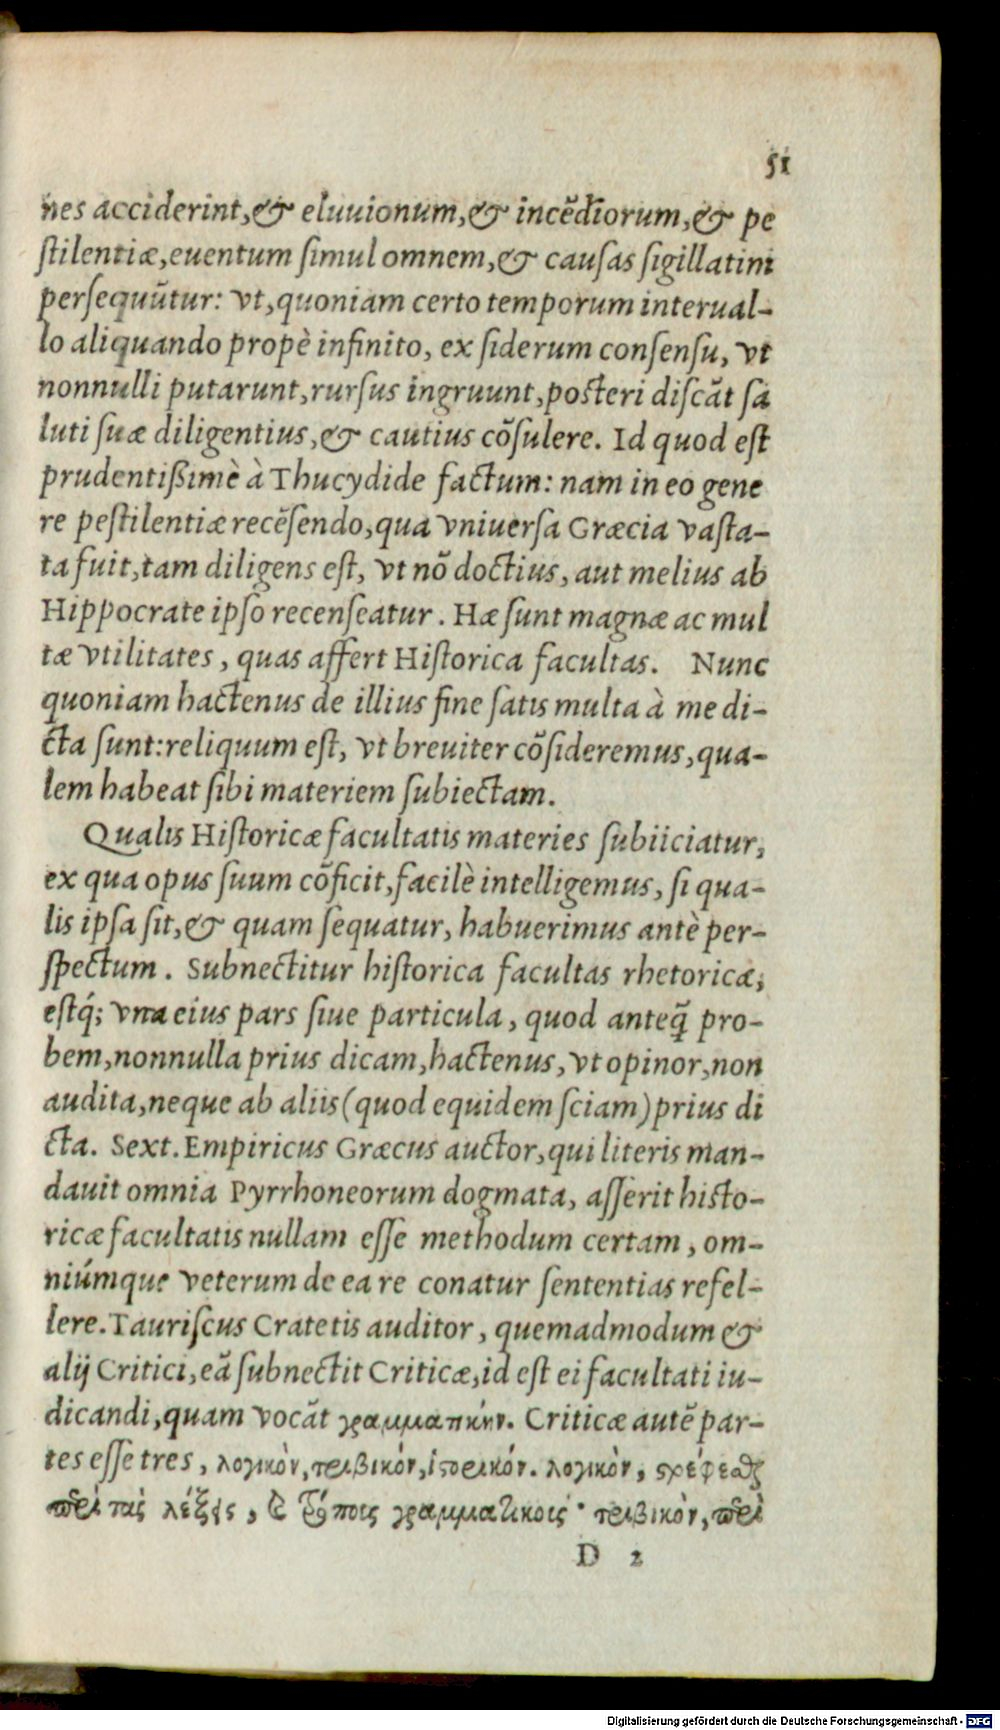 51
nes acciderint,& eluuionum,& incẽdiorum,& pe
ſtilentiæ,euentum ſimul omnem,& cauſas ſigillatim
perſequũtur: vt,quoniam certo temporum interual-
lo aliquando propè infinito, ex ſiderum conſenſu, vt
nonnulli putarunt,rurſus ingruunt,poſteri diſcãt ſa
luti ſuæ diligentius,& cautius cõſulere. Id quod eſt
prudentißimè à Thucydide factum: nam in eo gene
re peſtilentiæ recẽſendo,qua vniuerſa Græcia vaſta-
ta fuit,tam diligens eſt, vt nõ doctius, aut melius ab
Hippocrate ipſo recenſeatur. Hæ ſunt magnæ ac mul
tæ vtilitates, quas affert Hiſtorica facultas. Nunc
quoniam hactenus de illius fine ſatis multa à me di-
cta ſunt:reliquum eſt, vt breuiter cõſideremus,qua-
lem habeat ſibi materiem ſubiectam.
Qualis Hiſtoricæ facultatis materies ſubiiciatur,
ex qua opus ſuum cõficit,facilè intelligemus, ſi qua-
lis ipſa ſit,& quam ſequatur, habuerimus antè per-
ſpectum. Subnectitur hiſtorica facultas rhetoricæ,
eſtq́; vna eius pars ſiue particula, quod anteq̃ pro-
bem,nonnulla prius dicam,hactenus, vt opinor,non
audita,neque ab aliis(quod equidem ſciam)prius di
cta. Sext. Empiricus Græcus auctor,qui literis man-
dauit omnia Pyrrhoneorum dogmata, aſſerit hiſto-
ricæ facultatis nullam eſſe methodum certam, om-
niúmque veterum de ea re conatur ſententias refel-
lere. Tauriſcus Cratetis auditor, quemadmodum &
alij Critici, eã ſubnectit Criticæ,id eſt ei facultati iu-
dicandi,quam vocãt γραμματικήν. Criticæ autẽ par-
tes eſſe tres, λογικὸν,τριβικόν,ἱστορικόν. λογικὸν, στρέφεσθαι
περὶ τὰς λέξεις, & τρόποις γραμματικοῖς· τριβικὸν, περὶ
D 2
Digitalisierung gefördert durch die Deutsche Forschungsgemeinschaft - DFG